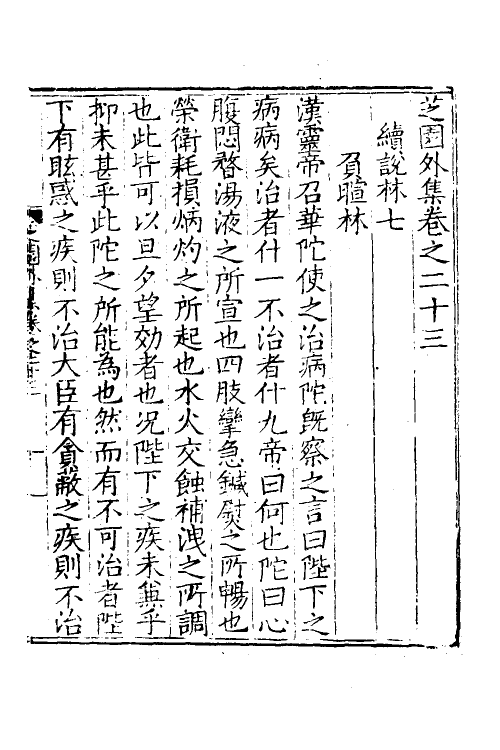 芝園外集卷之二十三
續說林七
負暄林
漢靈帝召華陀使之治病陀既察之言曰陛下之
病病矣治者什一不治者什九帝曰何也陀曰心
腹悶瞀湯液之所宣也四肢攣急鍼熨之所暢也
榮衛耗損焫灼之所起也水火交蝕補洩之所調
也此皆可以旦夕望効者也况陛下之疾未無乎
抑未甚乎此陀之所能為也然而有不可治者陛
下有眩惑之疾則不治大臣有貪蔽之疾則不治